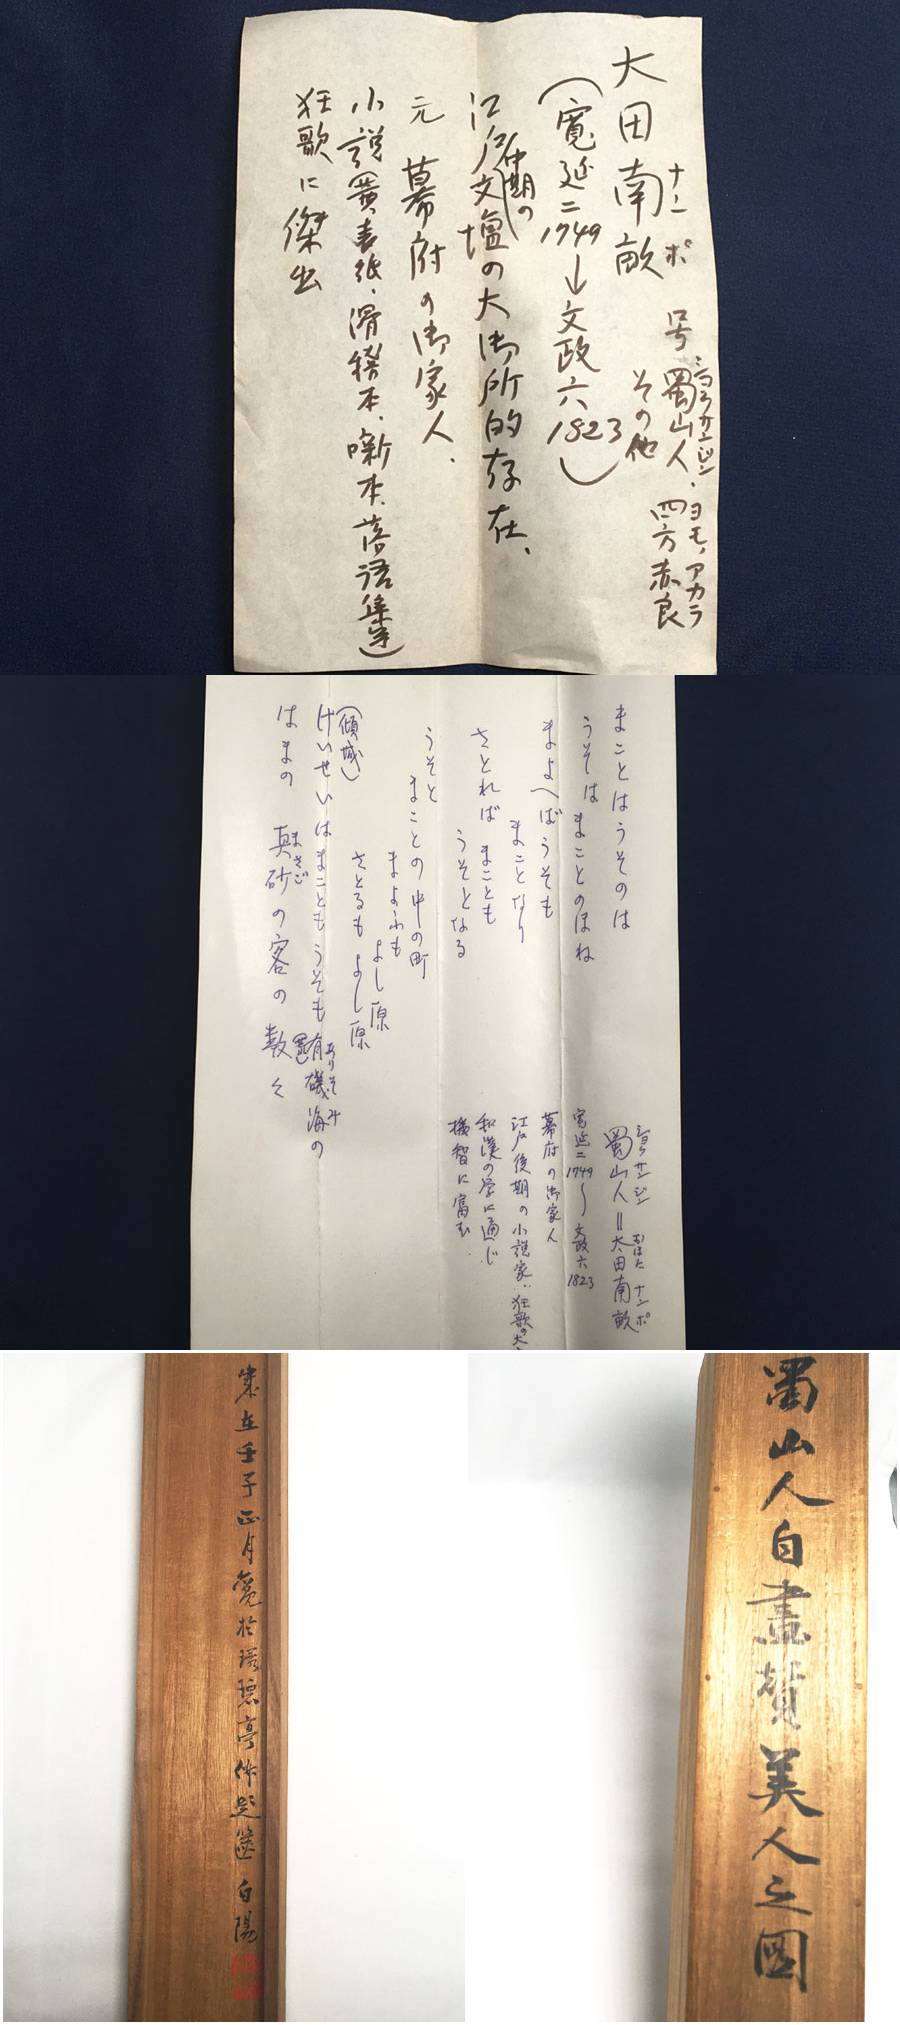 大田南畝
ナンポ
号 蜀山人、四方赤良
ショクサンジン、ヨモノアカラ
その他
(寛延二 1749 → 文政六 1823)
江戸中期の文壇の大御所的存在、
元 幕府の御家人、
小説(黄表紙、滑稽本、噺本、落語集)
狂歌に傑出
まことはうそのは
うそはまことのほね
まよへばうそも
まことなり
さとればまことも
うそとなる
うそと
まことの中の町
まよふも よし原
さとるも よし原
(傾城)
けいせいはまこともうそも有磯海の
ありそみ
はまの真砂の客の数々
まさご
蜀山人=大田南畝
ショクサンジン おほた ナンポ
寛延二 1749〜文政六 1823
幕府の御家人
江戸後期の小説家、狂歌の大
和漢の学に通じ
機智に富む
歳在壬子正月 於 亭作題 白陽
蜀山人自畫賛美人之図